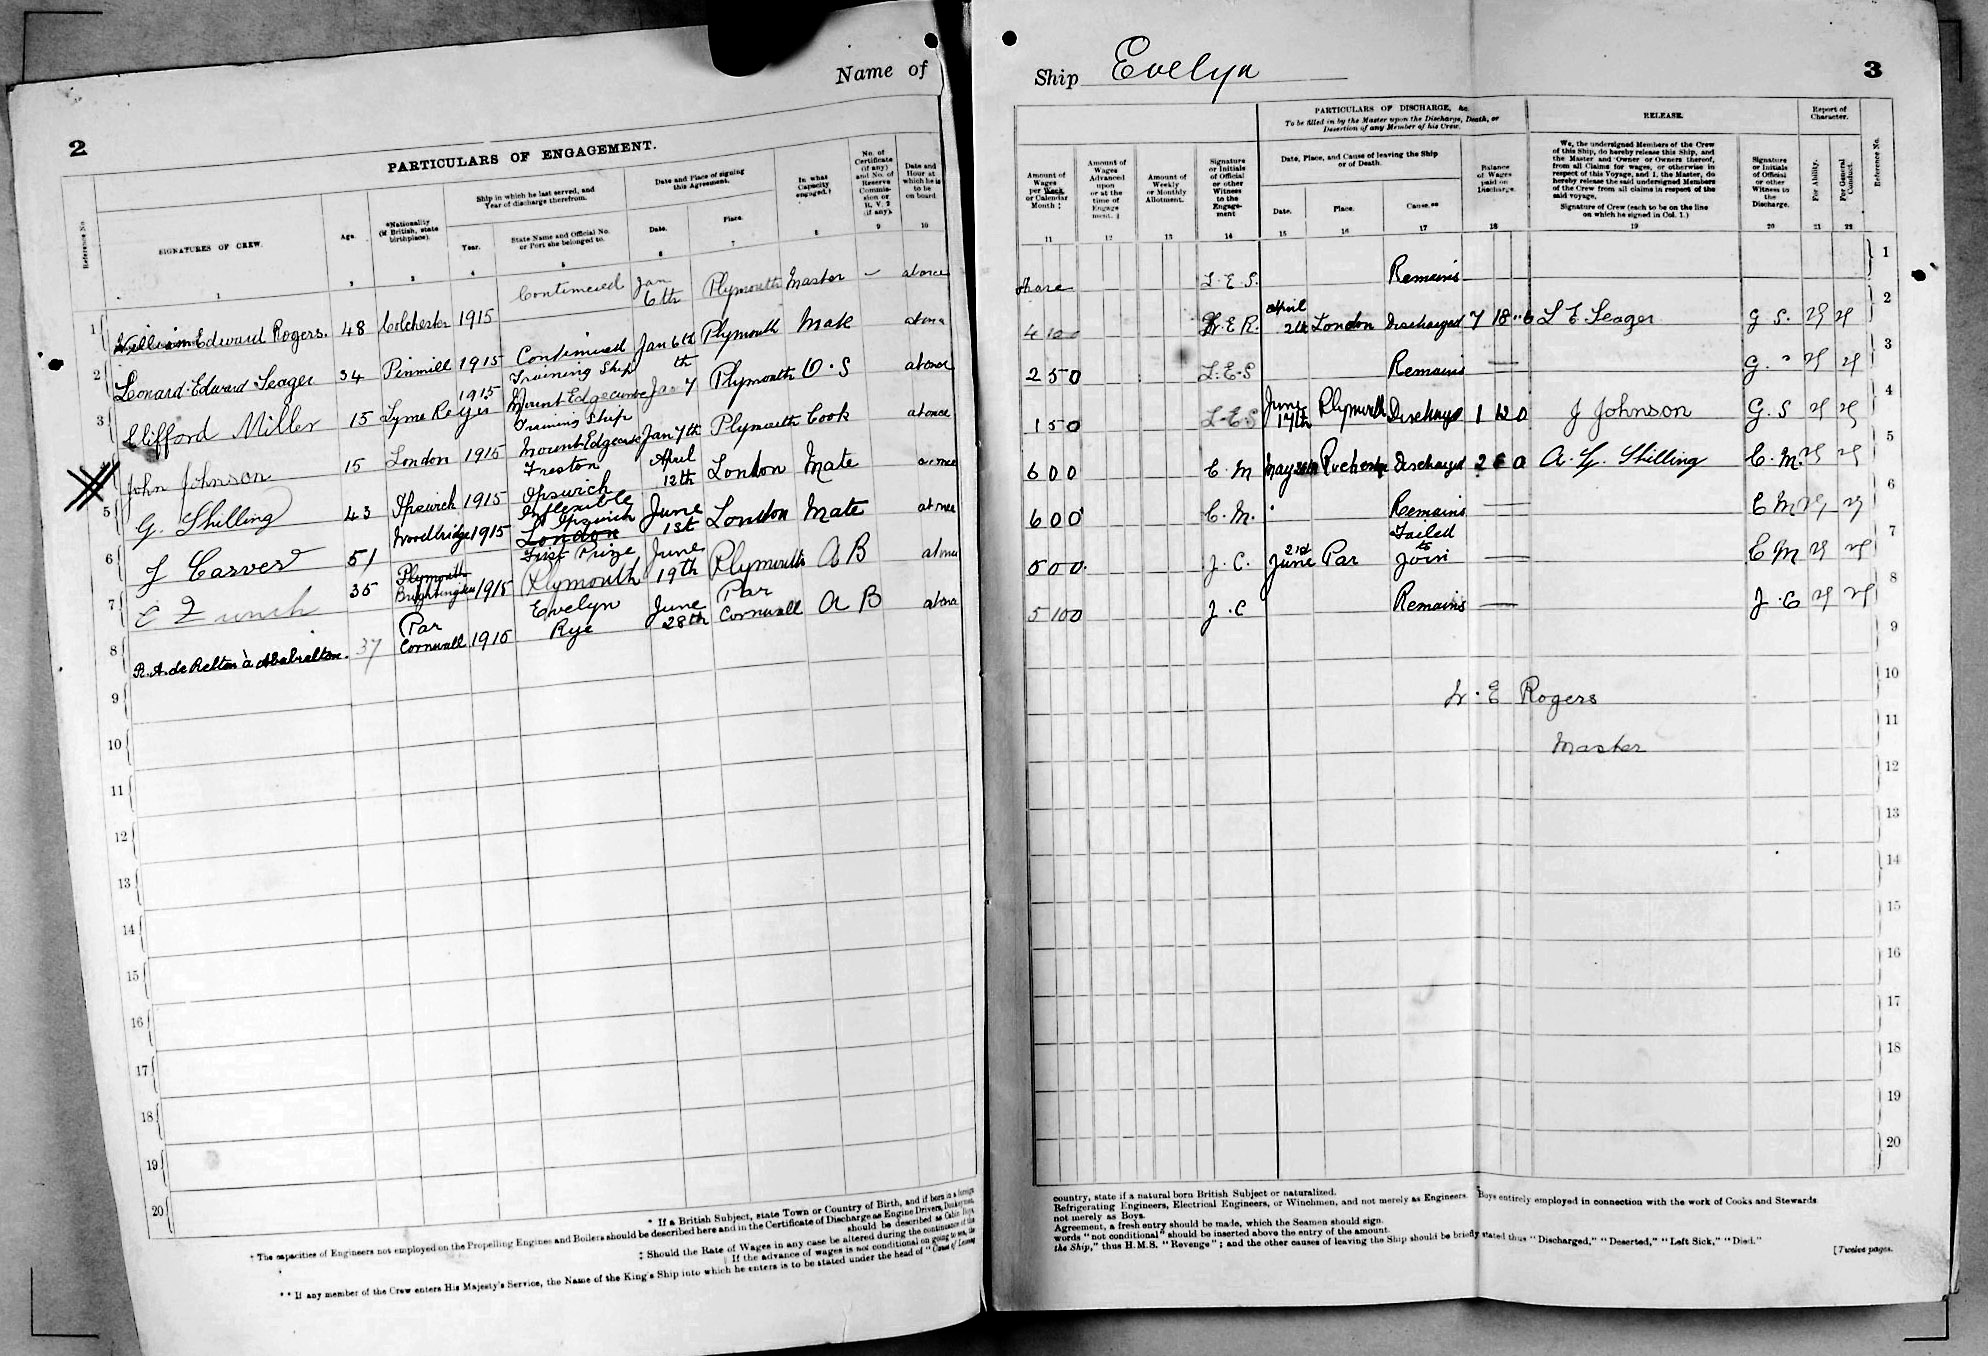 Name of
2
PARTICULARS OF ENGAGEMENT.
Reference No.
SIGNATURES OF CREW.
Age.
*Nationality (if British, state birthplace).
Ship in which he last served, and Year of discharge therefrom.
Year.
State Name and Official No. or Port she belonged to.
Date and Place of signing this Agreement.
Date.
Place.
In what Capacity engaged.†
No. of Certificate (if any) and No. of Reserve Commission or R.V. 2 (if any).
Date and Hour at which he is to be on board
1 2 3 4 5 6 7 8 9 10
1 William Edward Rogers. 48 Colchester 1915 Continued Jan 6th Plymouth Master – at once
2 Leonard Edward Seager 34 Pinmill 1915 Continued Jan 6th Plymouth Mate at once
3 Clifford Miller 15 Lyme Regis 1915 Training Ship Mount Edgecumbe Jan 7th Plymouth O.S at once
John Johnson 15 London 1915 Training Ship Mount Edgecumbe Jan 7th Plymouth Cook at once
5 G. Shilling 43 Ipswich 1915 Freston Ipswich April 12th London Mate at once
6 J Carver 51 Woodbridge 1915 Inflexible Ipswich London June 1st London Mate at once
7 35 Plymouth 1915 First Prize Plymouth June 19th Plymouth A B at once
8 R. A. de Relton à 37 Par Cornwall 1915 Evelyn Rye June 28th Par Cornwall A B at once
9
10
11
12
13
14
15
16
17
18
19
20
* If a British Subject, state Town or Country of Birth, and if born in a foreign
† The capacities of Engineers not employed on the Propelling Engines and Boilers should be described here and in the Certificate of Discharge as Engine Drivers, Donkeymen,
should be described as Cabin Boys,
‡ Should the Rate of Wages in any case be altered during the continuance of the
|| If the advance of wages is not conditional on going to sea, the
** If any member of the Crew enters His Majesty's Service, the Name of the King's Ship into which he enters is to be stated under the head of "Cause of Leaving
Ship Evelyn
3
Amount of Wages per Week or Calendar Month ‡
Amount of Wages Advanced upon or at the time of Engagement. ||
Amount of Weekly or Monthly Allotment.
Signature or Initials of Official or other Witness to the Engagement
PARTICULARS OF DISCHARGE, &c.
To be filled in by the Master upon the Discharge, Death, or Desertion of any Member of his Crew.
Date, Place, and Cause of leaving the Ship or of Death.
Date.
Place.
Cause.**
Balance of Wages paid on Discharge.
RELEASE.
We, the undersigned Members of the Crew
of this Ship, do hereby release this Ship, and
the Master and Owner or Owners thereof,
from all Claims for wages, or otherwise in
respect of this Voyage, and I, the Master, do
hereby release the said undersigned Members
of the Crew from all claims in respect of the
said voyage.
Signature of Crew (each to be on the line
on which he signed in Col. 1.)
Signature or Initials of Official or other Witness to the Discharge.
Report of Character.
For Ability.
For General Conduct.
Reference No.
11 12 13 14 15 16 17 18 19 20 21 22
Share L. E. S. Remains 1
4 10 0 W. E. R. April London Discharged 7 18 6 L E Seager G S. 2
2 5 0 L. E. S Remains G. 3
1 5 0 L. E. S June 17th Plymouth Discharged 1 12 0 J Johnson G. S 4
6 0 0 C. M Discharged 2 0 A. G. Shilling C. M. 5
6 0 0 C. M. Remains C M 6
5 0 0 J. C. 21st June Par Failed to Join C M 7
5 10 0 J. C Remains J. C 8
9
10
W. E Rogers
11
Master
12
13
14
15
16
17
18
19
20
country, state if a natural born British Subject or naturalized.
Refrigerating Engineers, Electrical Engineers, or Winchmen, and not merely as Engineers. Boys entirely employed in connection with the work of Cooks and Stewards
not merely as Boys.
Agreement, a fresh entry should be made, which the Seamen should sign.
words "not conditional" should be inserted above the entry of the amount.
the Ship," thus H.M.S. "Revenge"; and the other causes of leaving the Ship should be briefly stated thus "Discharged," "Deserted," "Left Sick," "Died."
[Twelve pages.